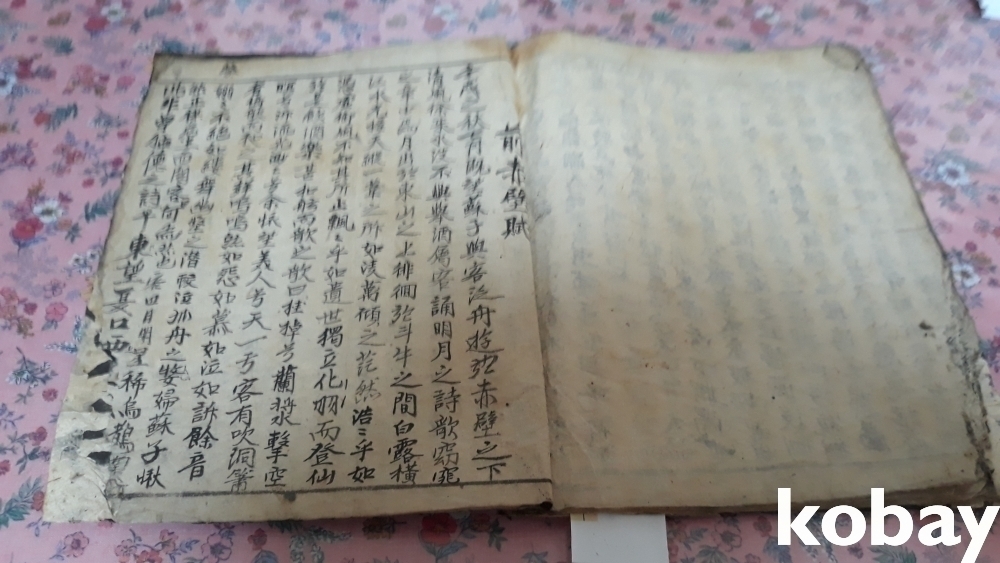 前赤壁賦
壬戌之秋七月旣望蘇子與客泛舟遊於赤壁之下
清風徐來水波不興擧酒屬客誦明月之詩歌窈窕
之章少焉月出於東山之上徘徊於斗牛之間白露橫
江水光接天縱一葦之所如凌萬頃之茫然浩〻乎如
馮虛御風不知其所止飄〻乎如遺世獨立化羽而登仙
於是飮酒樂甚扣舷而歌之歌曰桂棹兮蘭槳擊空
明兮泝流光渺〻兮余懷望美人兮天一方客有吹洞簫
者倚歌而和之其聲嗚嗚然如怨如慕如泣如訴餘音
嫋〻不絶如縷舞幽壑之潛蛟泣孤舟之嫠婦蘇子愀
然正襟危坐而問客曰何爲其然也客曰月明星稀烏鵲南
此非曹孟德之詩乎東望夏口西
kobay